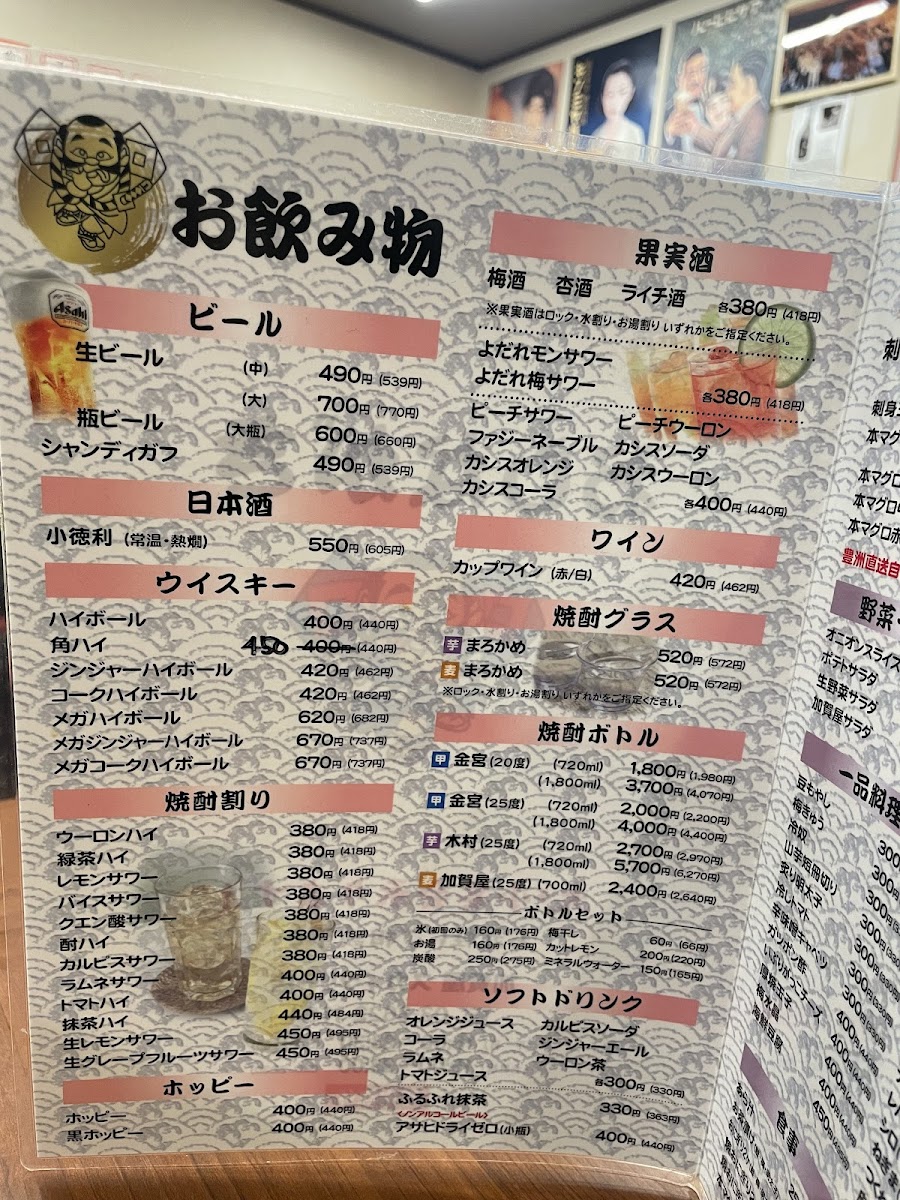 お飲み物
Asahi
ビール
生ビール (中) 490円 (539円)
(大) 700円 (770円)
瓶ビール (大瓶) 600円 (660円)
シャンディガフ 490円 (539円)
日本酒
小徳利 (常温・熱燗) 550円 (605円)
ウイスキー
ハイボール 400円 (440円)
角ハイ 450 400円 (440円)
ジンジャーハイボール 420円 (462円)
コークハイボール 420円 (462円)
メガハイボール 620円 (682円)
メガジンジャーハイボール 670円 (737円)
メガコークハイボール 670円 (737円)
焼酎割り
ウーロンハイ 380円 (418円)
緑茶ハイ 380円 (418円)
レモンサワー 380円 (418円)
バイスサワー 380円 (418円)
クエン酸サワー 380円 (418円)
酎ハイ 380円 (418円)
カルピスサワー 380円 (418円)
ラムネサワー 400円 (440円)
トマトハイ 400円 (440円)
抹茶ハイ 440円 (484円)
生レモンサワー 450円 (495円)
生グレープフルーツサワー 450円 (495円)
ホッピー
ホッピー 400円 (440円)
黒ホッピー 400円 (440円)
果実酒
梅酒 杏酒 ライチ酒 各380円 (418円)
※果実酒はロック・水割り・お湯割り いずれかをご指定ください。
よだれモンサワー
よだれ梅サワー 各380円 (418円)
ピーチサワー ピーチウーロン
ファジーネーブル カシスソーダ
カシスオレンジ カシスウーロン
カシスコーラ 各400円 (440円)
ワイン
カップワイン (赤/白) 420円 (462円)
焼酎グラス
芋 まろかめ 520円 (572円)
麦 まろかめ 520円 (572円)
※ロック・水割り・お湯割り いずれかをご指定ください。
焼酎ボトル
甲 金宮 (20度) (720ml) 1,800円 (1,980円)
(1,800ml) 3,700円 (4,070円)
甲 金宮 (25度) (720ml) 2,000円 (2,200円)
(1,800ml) 4,000円 (4,400円)
芋 木村 (25度) (720ml) 2,700円 (2,970円)
(1,800ml) 5,700円 (6,270円)
麦 加賀屋 (25度) (700ml) 2,400円 (2,640円)
ボトルセット
氷 (初回のみ) 160円 (176円) 梅干し 60円 (66円)
お湯 160円 (176円) カットレモン 200円 (220円)
炭酸 250円 (275円) ミネラルウォーター 150円 (165円)
ソフトドリンク
オレンジジュース カルピスソーダ
コーラ ジンジャーエール
ラムネ ウーロン茶
トマトジュース 各300円 (330円)
ふるふれ抹茶 330円 (363円)
<ノンアルコールビール>
アサヒドライゼロ (小瓶) 400円 (440円)
刺
刺身
本マグロ
本マグロ
本マグロ
本マグロ赤
豊洲直送自
野菜・
オニオンスライス
ポテトサラダ
生野菜サラダ
加賀屋サラダ
一品料理
豆もやし
梅きゅう
冷奴
山芋短冊切り
炙り明太子
冷しトマト
辛味噌キャベツ
ガツポン酢
いぶりがっこチーズ
梅水晶
海鮮豆腐
食事